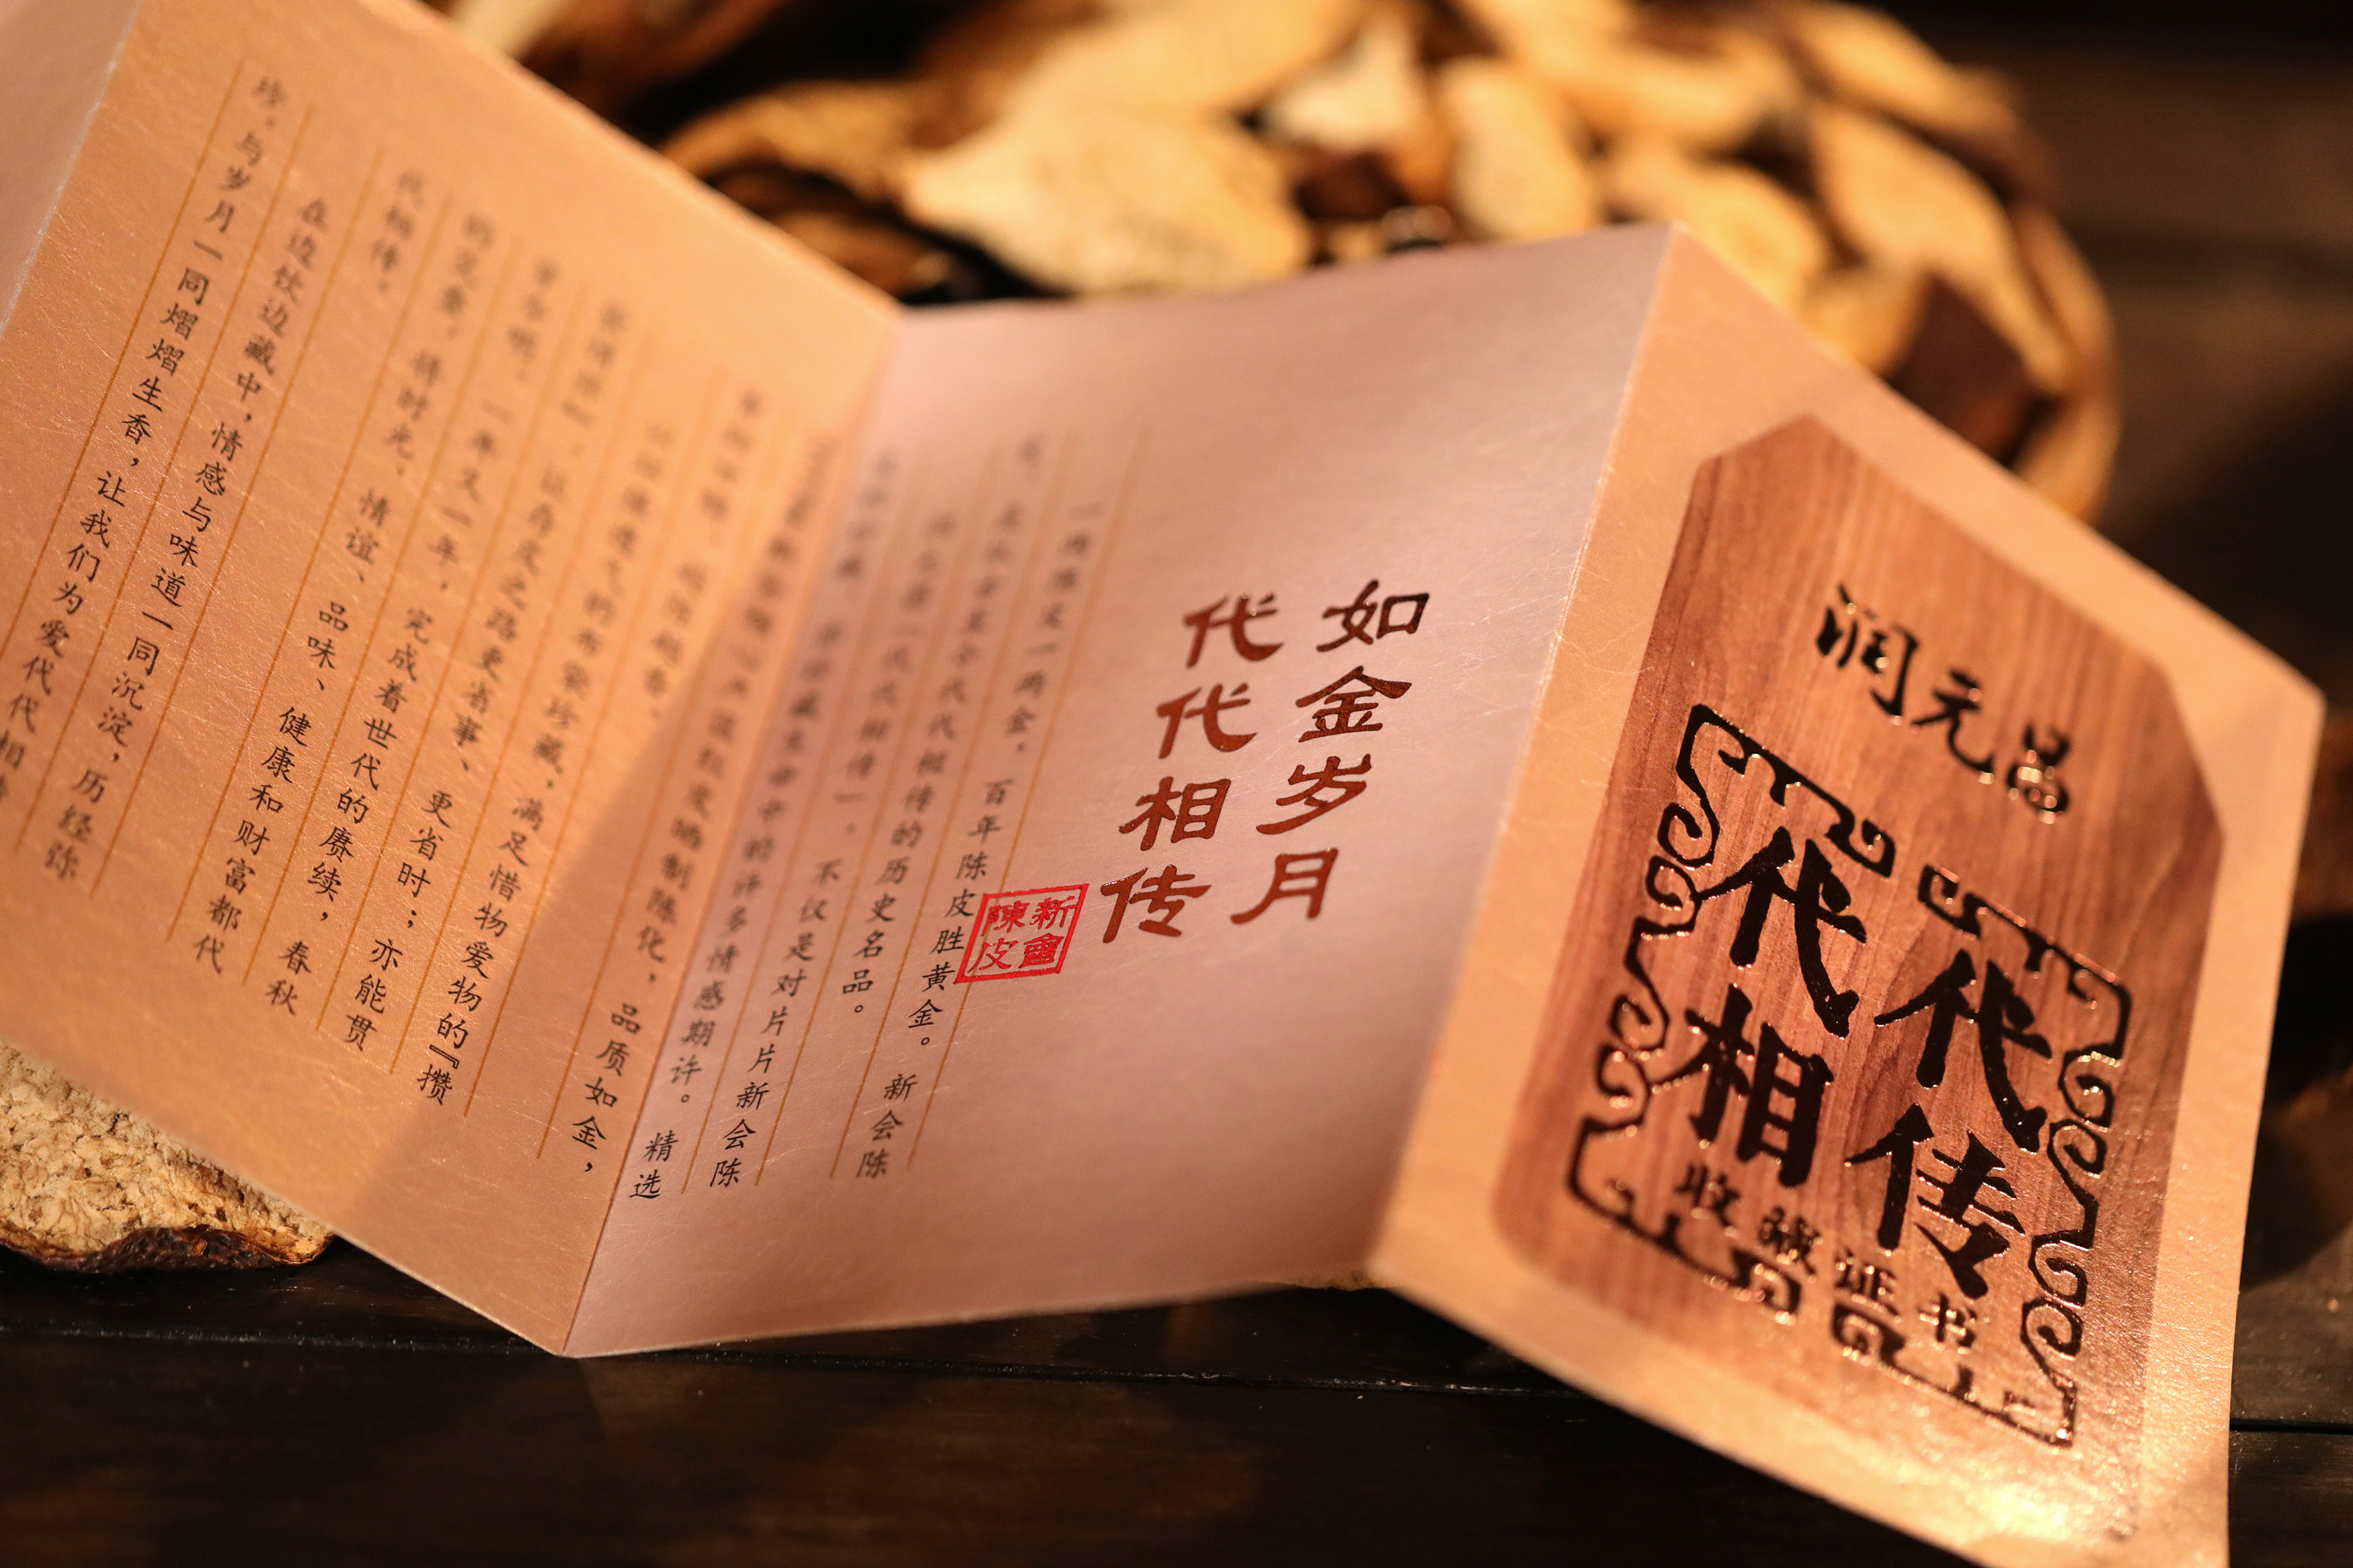 润元昌
代代
相传
收藏证书
如金岁月
代代相传
新會
陳皮
一两陈皮一两金，百年陈皮胜黄金。新会陈
皮，是从古至今代代相传的历史名品。
代代相传」，不仅是对片片新会陈
珍藏生命中的许多情感期许。精选
新会核心产区红皮晒制陈化，品质如金，
越陈越香。
的布袋珍藏，满足惜物爱物的『攒
让存皮之路更省事、更省时；亦能贯
一年又一年，完成着世代的赓续，春秋
的交叠，将时光、情谊、品味、健康和财富都代
代相传。
在边饮边藏中，情感与味道一同沉淀，历经弥
珍，与岁月一同熠熠生香，让我们为爱代代相传